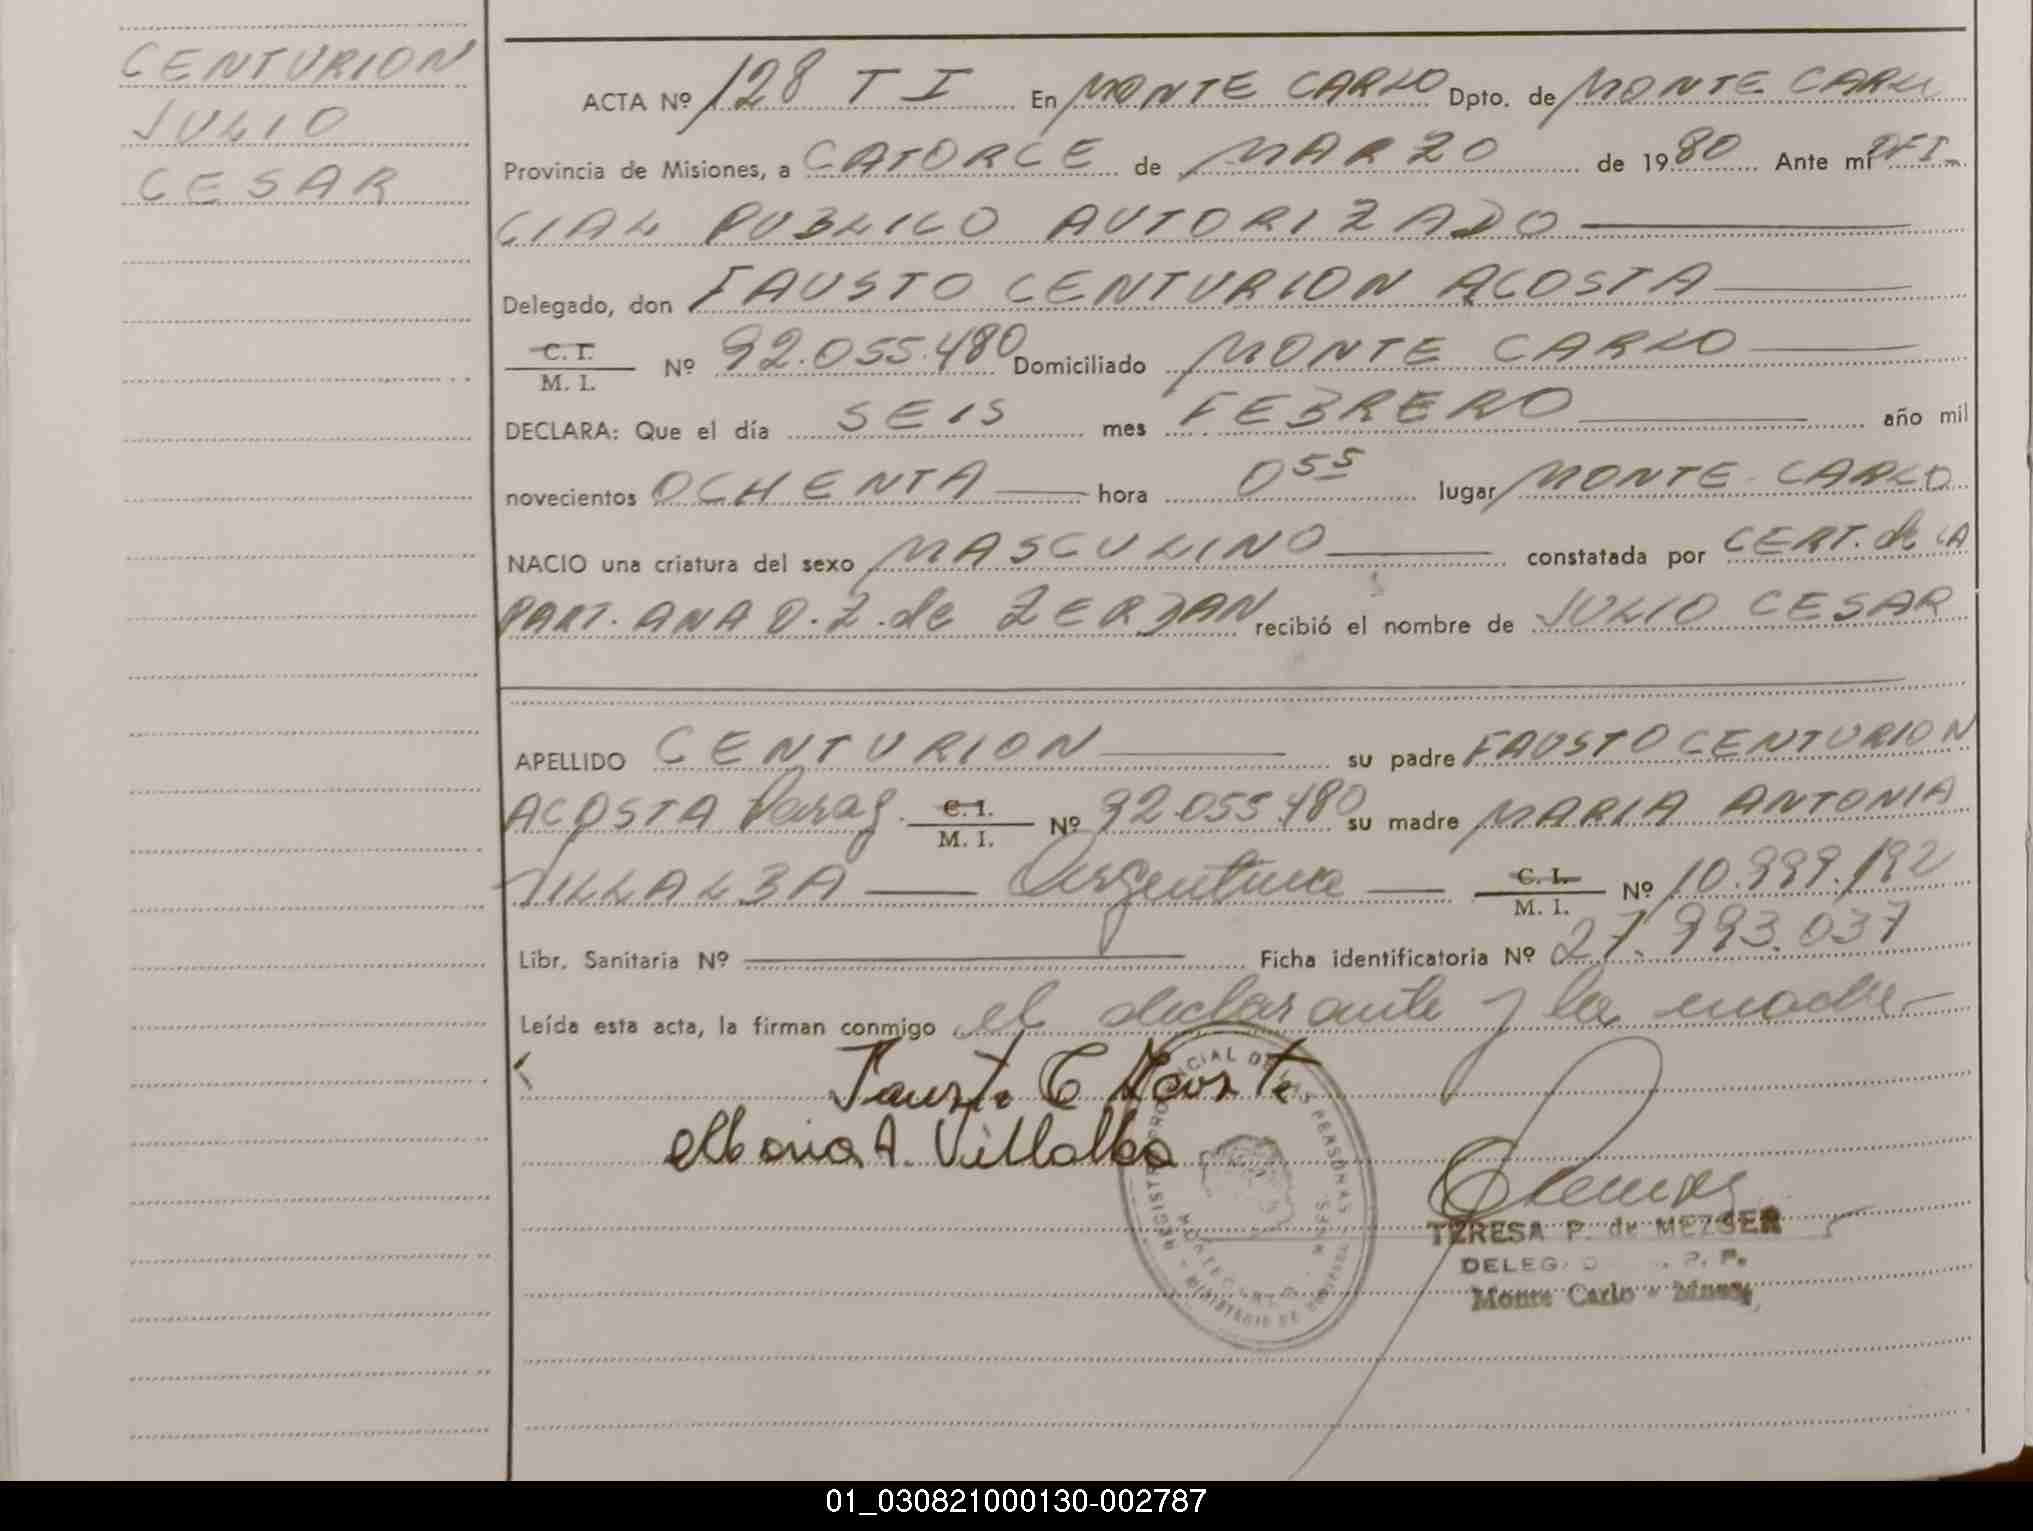 CENTURION
JULIO
CESAR
ACTA Nº 128 T I En MONTE CARLO Dpto. de MONTE CARLO
Provincia de Misiones, a CATORCE de MARZO de 1980 Ante mí OFI-
CIAL PUBLICO AUTORIZADO
Delegado, don FAUSTO CENTURION ACOSTA
C. I.
M. I. Nº 92.055.480 Domiciliado MONTE CARLO
DECLARA: Que el día SEIS mes FEBRERO año mil
novecientos OCHENTA hora 0 55 lugar MONTE CARLO
NACIO una criatura del sexo MASCULINO constatada por CERT. de LA
PART. ANA D. Z. de ZERJAN recibió el nombre de JULIO CESAR
APELLIDO CENTURION su padre FAUSTO CENTURION
ACOSTA Parag. C. I. M. I. Nº 92.055.480 su madre MARIA ANTONIA
VILLALBA Argentina C. I. M. I. Nº 10.999.192
Libr. Sanitaria Nº Ficha identificatoria Nº 27.993.037
Leída esta acta, la firman conmigo el declarante y la madre
Fausto C Acosta
Maria A. Villalba
REGISTRO PROVINCIAL DE LAS PERSONAS
MONTECARLO
MINISTERIO DE
TERESA P. de MEZGER
Monte Carlo - Mnes.
01_030821000130-002787